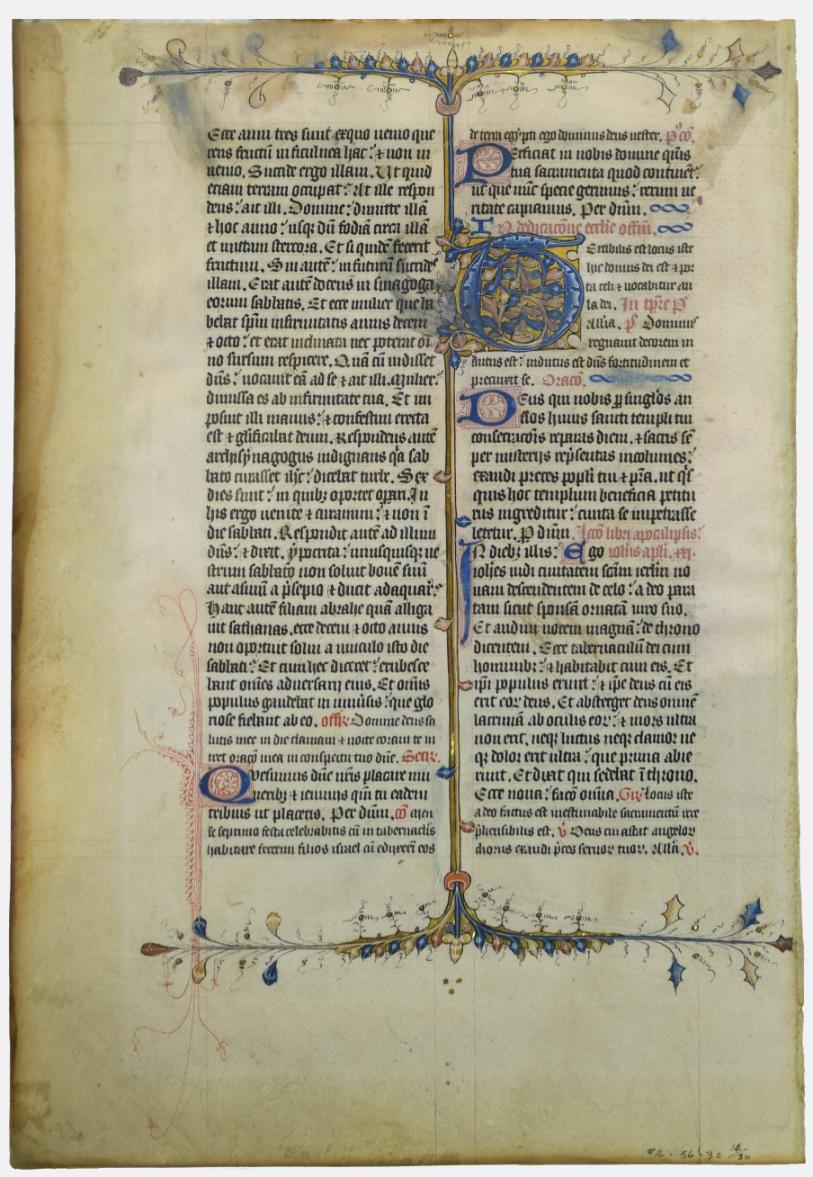 Ecce anni tres sunt exquo uenio que
rens fructū in ficulnea hac: ⁊ non in
uenio. Succide ergo illam. Ut quid
etiam terram occupat: At ille respon
dens: ait illi. Domine: dimitte illā
⁊ hoc anno: usq; dū fodiā circa illā
et mittam stercora. Et si quidē fecerit
fructum. Sin autē: in futurū succides
illam. Erat autē docens in sinagoga
eorum sabbatis. Et ecce mulier que ha
bebat spm̄ infirmitatis annis decem
⁊ octo: et erat inclinata nec poterat oī
no sursum respicere. Quā cū uidisset
dn̄s: uocauit eā ad se ⁊ ait illi. Mulier:
dimissa es ab infirmitate tua. Et im
posuit illi manus: ⁊ confestim erecta
est ⁊ glīficabat deum. Respondens autē
archisynagogus indignans qa sab
bato curasset ihc: dicebat turbe. Sex
dies sunt: in quib; oportet oparī. In
his ergo uenite ⁊ curamini: ⁊ non ī
die sabbati. Respondit autē ad illum
dn̄s: ⁊ dixit. ypocrita: unusquisq; ue
strum sabbato non soluit bouē suū
aut asinū a psepio ⁊ ducit adaquar:
Hanc autē filiam abrahe quā alliga
uit sathanas. ecce decem ⁊ octo annis
non oportuit solui a uinculo isto die
sabbati: Et cum hec diceret: erubesce
bant om̄es aduersarij eius. Et om̄is
populus gaudebat in uniūsis: que glo
riose fiebant ab eo. offr̄ Domine deus sa
lutis mee in die clamaui ⁊ nocte coram te in
tret oracō mea in conspectu tuo dn̄e. Secr.
Quesumus dn̄e nr̄is placare mu
nerib; ⁊ ieiuniis qm̄ tu eadem
tribuis ut placeris. Per dn̄m. cō Men
se septimo festa celebrabitis cū in tabernaclis
habitare fecerim filios israel cū educerē eos
de terra egypti ego dominus deus uester. P̄cō.
Perficiat in nobis domine qm̄s
tua sacramenta quod continēt:
ut que nunc specie gerimus: rerum ue
ritate capiamus. Per dn̄m.
In dedicacione ecclie offm̄.
Terribilis est locus iste
hic domus dei est ⁊ por
ta celi ⁊ uocabitur au
la dei. In tpre P
Allīa. p̄s Dominus
regnauit decorem in
dutus est: indutus est dn̄s fortitudinem et
precinxit se. Oracō.
Deus qui nobis p singlōs an
nos huius sancti templi tui
consecracōis reparas diem. ⁊ sacris sē
per misterijs rep̄sentas incolumes:
exaudi preces popli tui ⁊ p̄ra. ut q̄s
quis hoc templum beneficia petitu
rus ingreditur: cuncta se impetrasse
letetur. P dn̄m. Lcō libri apocalipsis:
In dieb; illis: Ego iohis apli. xxi.
iohes uidi ciuitatem scām ierlm̄ no
uam descendentem de celo: a deo para
tam sicut sponsā ornatam uiro suo.
Et audiui uocem magnā: de throno
dicentem. Ecce tabernaculū dei cum
hominib: ⁊ habitabit cum eis. Et
ip̄i populus erunt: ⁊ ip̄e deus cū eis
erit eor̄ deus. Et absterget deus omnē
lacrimā ab oculis eor̄: ⁊ mors ultra
non erit. neq; luctus neq; clamor ne
q; dolor erit ultra: que prima abie
runt. Et dixit qui sedebat ī throno.
Ecce noua: facō omia. Gr̄ Locus iste
a deo factus est inestimabile sacramentū irre
p̄hensibilis est. v̄ Deus cui astat angelor̄
chorus exaudi p̄ces seruor̄ tuor̄. Allīa. v̄.